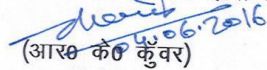 04.06.2016
(आर० के० कुँवर)